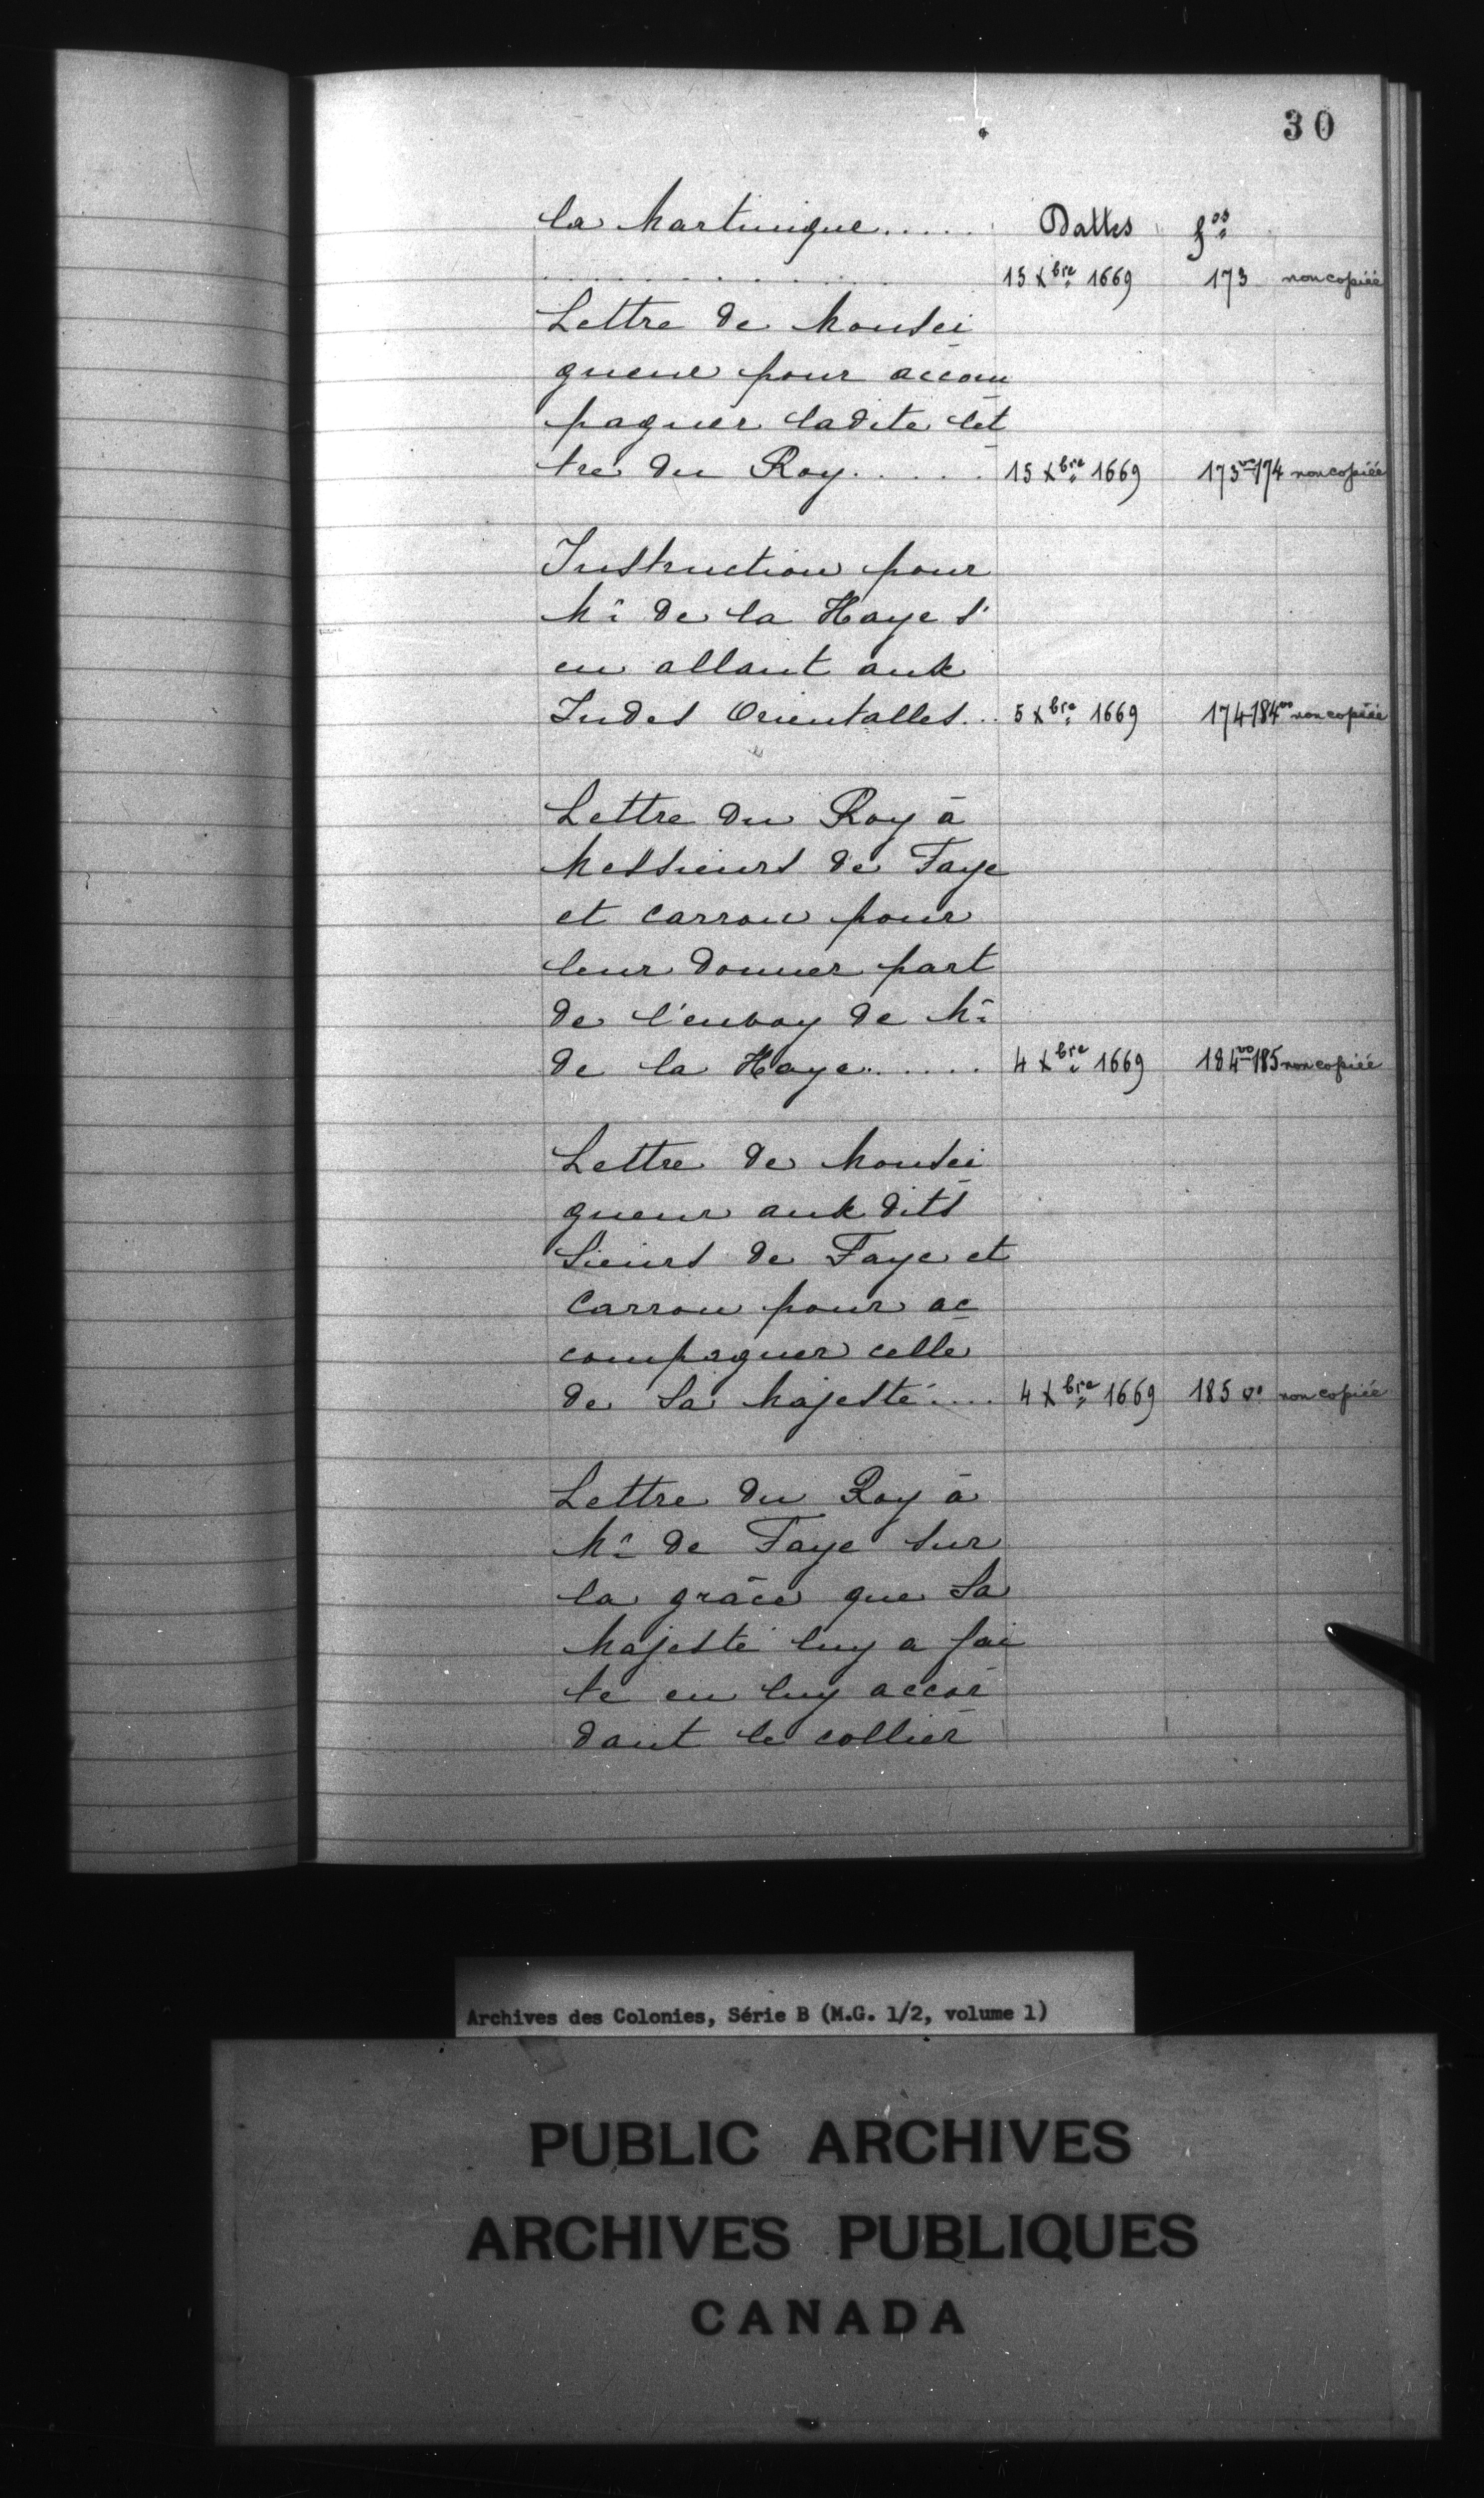 30
la Martinique..... Dattes fos
............ 15 Xbre 1669 173 non copiée
Lettre de Monsei
gneur pour accom
pagner ladite let
tre du Roy...... 15 Xbre 1669 173vo-174 non copiée
Instruction pour
Mr de la Haye s'
en allant aux
Indes Orientalles... 5 Xbre 1669 174-184vo non copiée
Lettre du Roy à
Messieurs de Faye
et Carron pour
leur donner part
de l'envoy de Mr
de la Haye...... 4 Xbre 1669 184vo-185 non copiée
Lettre de Monsei
gneur aux dits
Sieurs de Faye et
Carron pour ac
compagner celle
de Sa Majesté.... 4 Xbre 1669 185 vo non copiée
Lettre du Roy à
Mr de Faye sur
la grâce que Sa
Majesté luy a fai
te en luy accor
dant le collier
Archives des Colonies, Série B (M.G. 1/2, volume 1)
PUBLIC ARCHIVES
ARCHIVES PUBLIQUES
CANADA